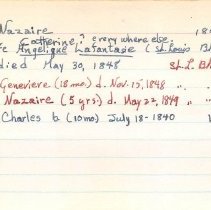 Nazaire 18
Catherine, every where else.
fe Angelique Lafantasie (St. Louis BA
died May 30, 1848 St. L. BA
Genevieve (18 mo) d. Nov. 15, 1848 "
Nazaire (5 yrs.) d. May 22, 1849 "
Charles b. (10 mo) July 18-1840